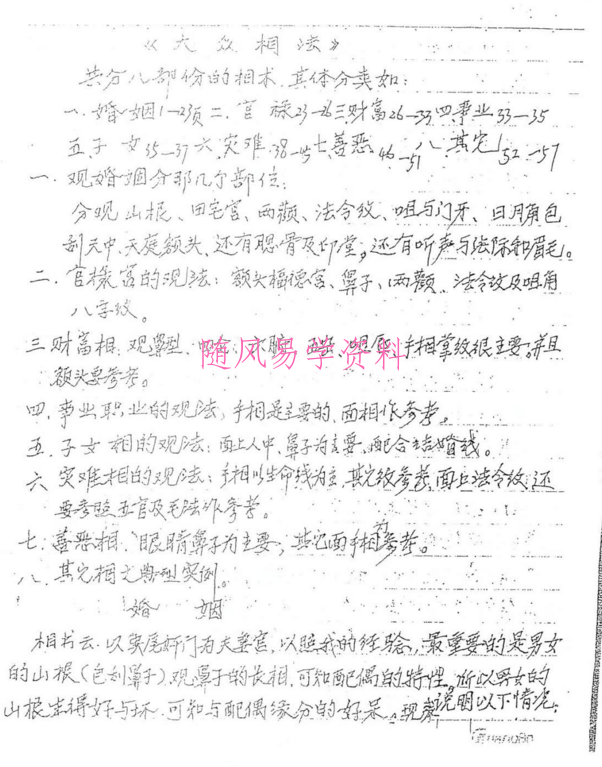 《大众相法》
共分八部份的相术.具体分类如:
一.婚姻1—23页二.官禄23-26三财富26-33四事业33—35
五.子女35—37六.灾难38—45七善恶46—51八.其它52—57
一、观婚姻分那几个部位:
分观山根、田宅宫、两颧、法令纹、咀与门牙、日月角包
刮天中、天庭额头、还有腮骨及印堂,还有听声与法际和眉毛。
二.官禄宫的观法:额头福德宫、鼻子、两颧、法令纹及咀角
八字纹。
三财富相.观鼻型、手相掌纹很主要.并且
额头要参考。
四.事业职业的观法,手相是主要的,面相作参考。
五.子女相的观法:面上人中、鼻子为主要、配合结婚线。
六灾难相的观法:手相以生命线为主,其它纹参考,面上法令纹,还
要参照五官及毛法作参考。
七.善恶相、眼睛鼻子为主要,其它面手相为参考。
八.其它相之典型实例。
婚姻
相书云.以奸门为夫妻宫,以照我的经验,最重要的是男女
的山根(包刮鼻子).观鼻子的长相,可知配偶的特性。所以男女的
山根生得好与坏.可知与配偶缘分的好呆。现说明以下情况:
随风易学资料